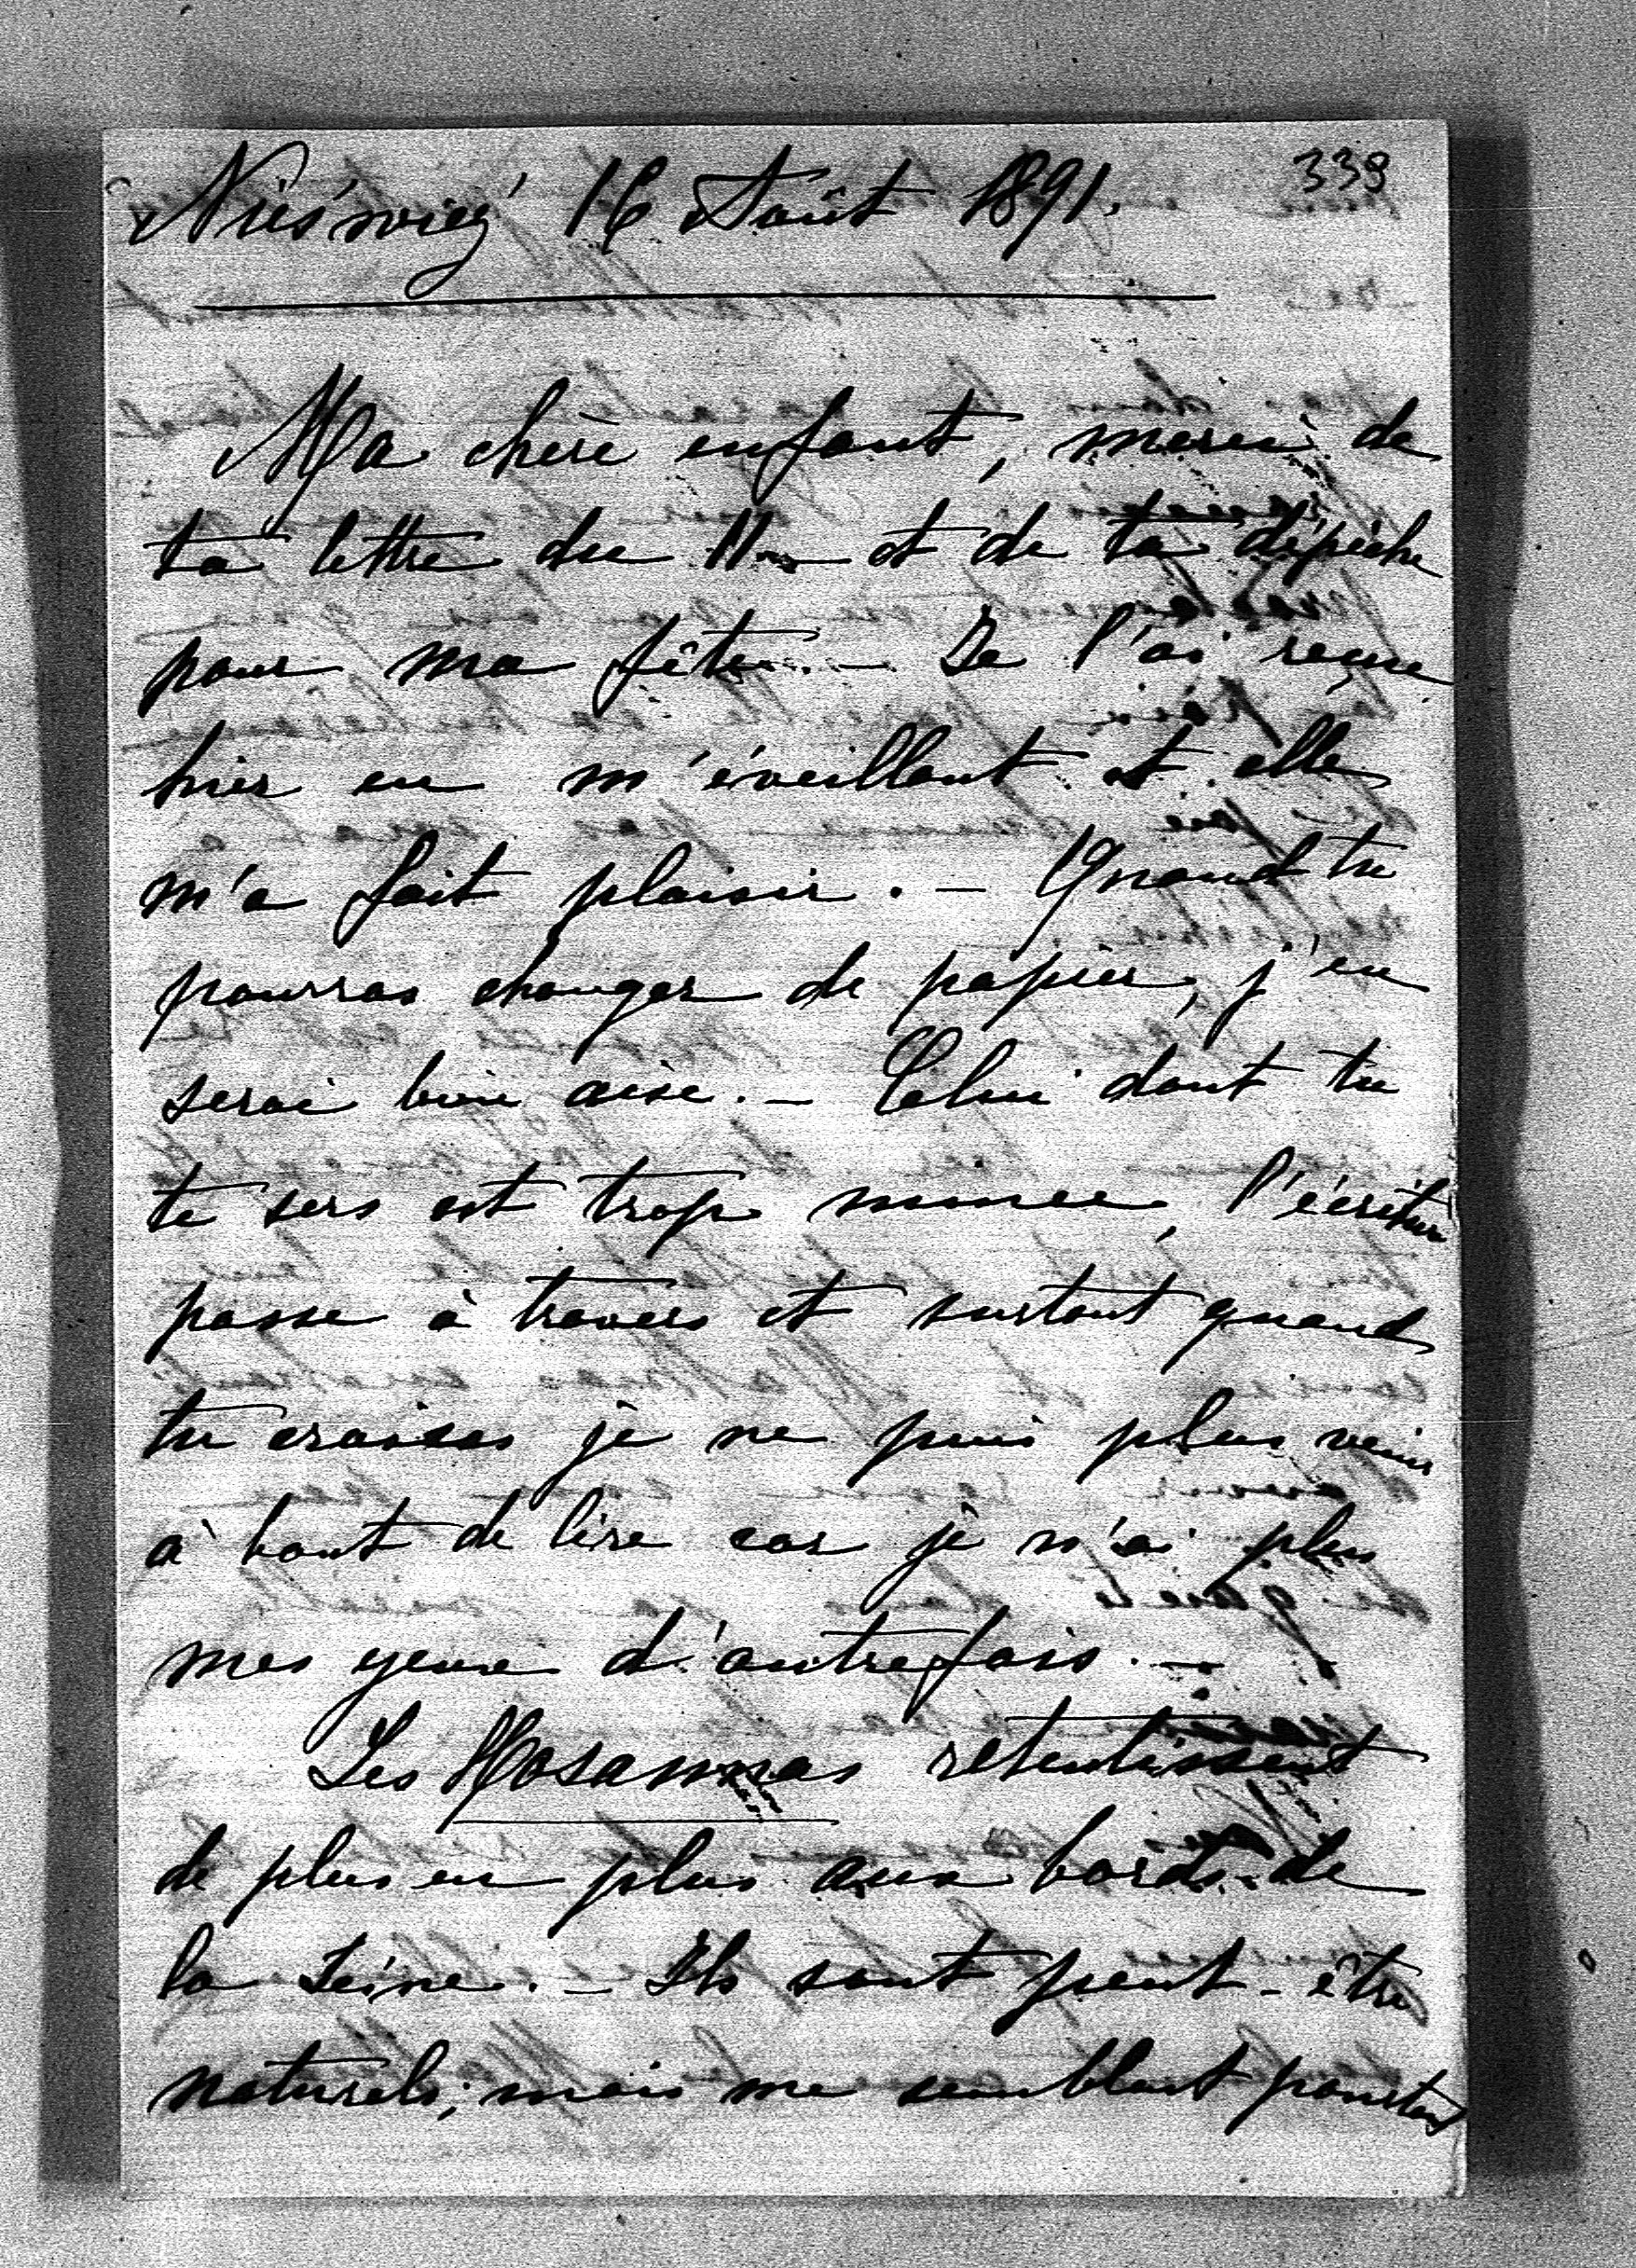 339
Nieśwież 16 Août 1891.
Ma chère enfant, merci de
ta lettre du 11 – et de ta dépêche
pour ma fête. – Je l'ai reçue
hier en m'éveillant et elle
m'a fait plaisir. – Quand tu
pourras changer de papier, j'en
serai bien aise. – Celui dont tu
te sers est trop mince, l'écriture
passe à travers et surtout quand
tu croises je ne puis plus venir
à bout de lire car je n'ai plus
mes yeux d'autrefois. –
Les Hosannas retentissent
de plus en plus aux bords de
la Seine. – Ils sont peut-être
naturels, mais me semblent pourtant